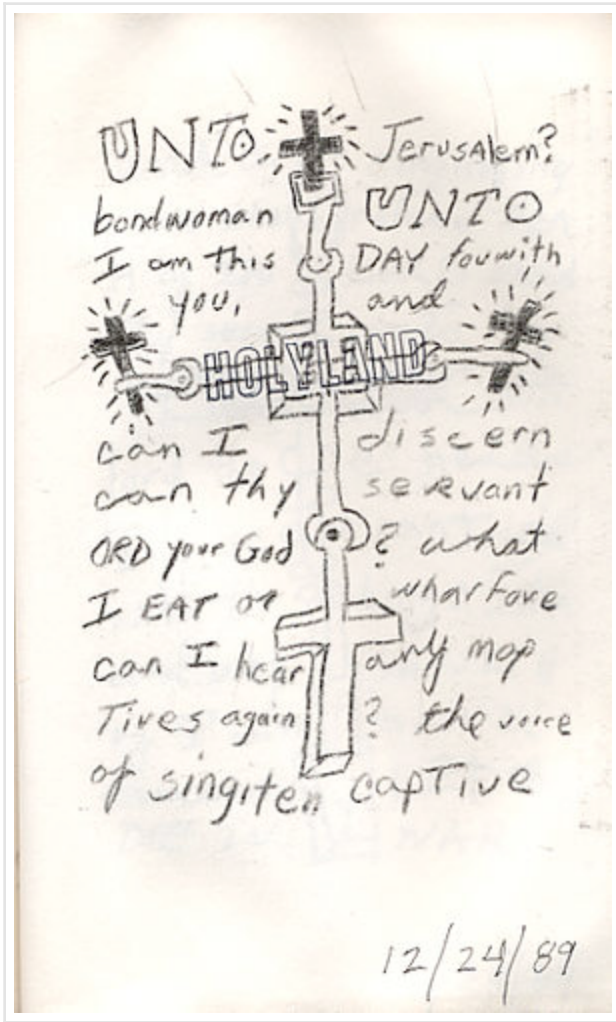 UNTO Jerusalem?
bondwoman UNTO
I am this DAY fouwith
you, and
HOLYLAND
can I discern
can thy servant
ORD your God ? what
I EAT or wharfore
can I hear any mop
Tives again ? the voice
of singiten capTive
12/24/89